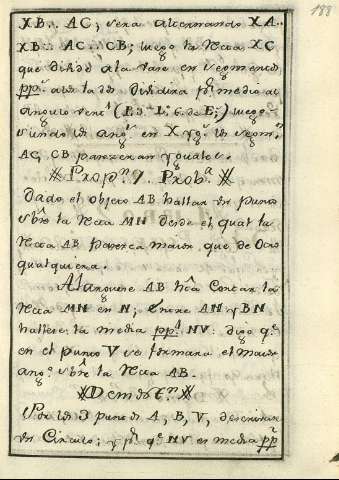 188
XB ∴ AC; sera alternando XA ∴
XB ∴ AC ∴ CB; luego la Recta XC
que divide à la vase en segmentos
pp.ˢ a los lados dividira p.ʳ medio al
angulo vert.ˡ (P. 3ª L.º 6. de E.;) luego
siendo los ang.ˢ en X yg.ˢ los segm.ˢ
AC, CB pareceran yguales.
Prop.ⁿ 7. Prob.ª
Dado el objeto AB hallar un punto
sobre la Recta MN desde el qual la
Recta AB paresca maior, que de otro
qualquiera.
Alarguese AB hta. Cortar la
Recta MN en N; entre AN y BN
hallese la media pp.ˡ NV: digo q.ᵉ
en el punto V se formara el maior
ang.º sbre la Recta AB.
Demostr.ⁿ
Por los 3 puntos A, B, V, descrivase
un Circulo; y p.ʳ q.ᵉ NV es media pp.ˡ